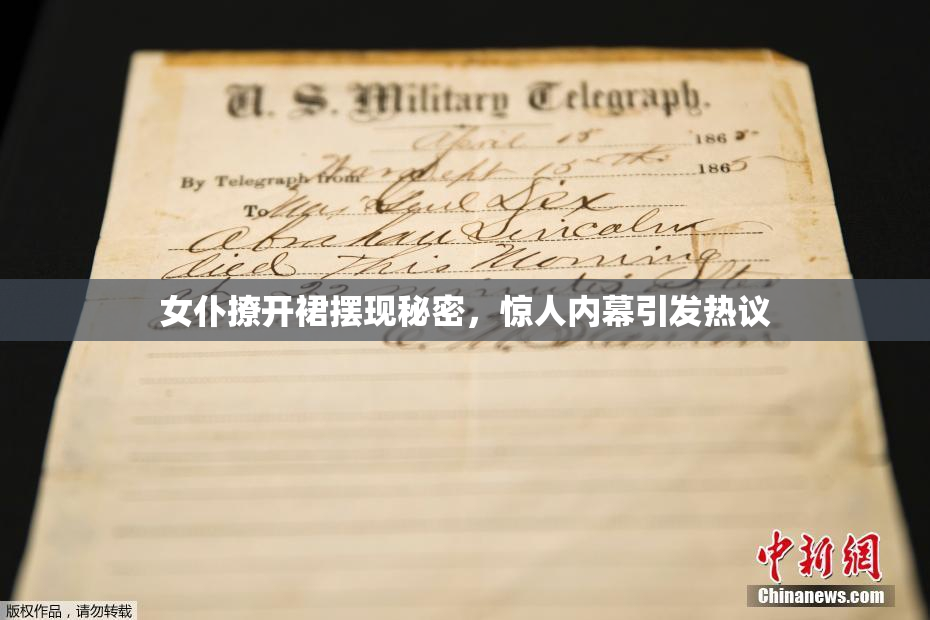 U. S. Military Telegraph.
April 15 1865
By Telegraph from War Dept 15th 1865
To Maj Genl Dix
Abraham Lincoln
died This Morning
at 22 minutes after
女仆撩开裙摆现秘密，惊人内幕引发热议
中新网
Chinanews.com
版权作品，请勿转载